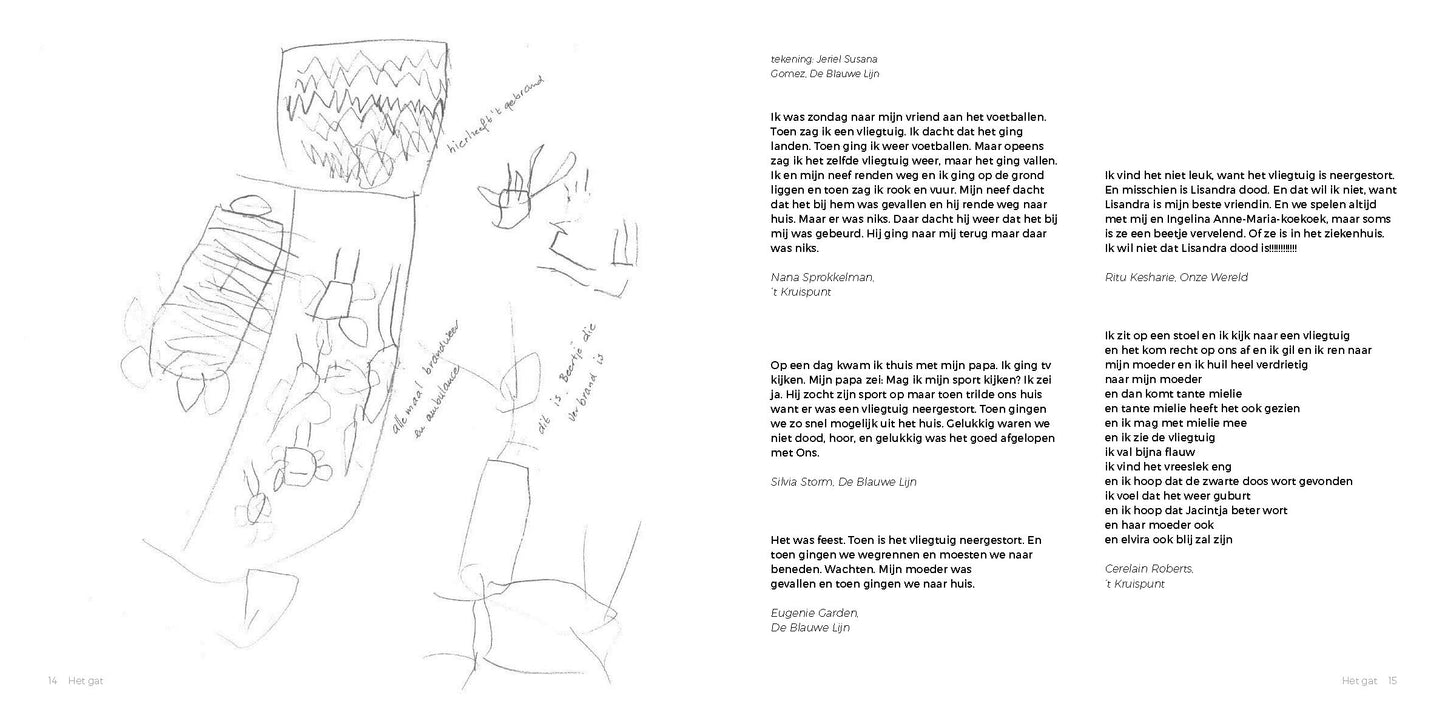 hier heeft 't gebrand
allemaal brandweer
en ambulance
dit is Beertje die
verbrand is
14 Het gat
tekening: Jeriel Susana
Gomez, De Blauwe Lijn
Ik was zondag naar mijn vriend aan het voetballen.
Toen zag ik een vliegtuig. Ik dacht dat het ging
landen. Toen ging ik weer voetballen. Maar opeens
zag ik het zelfde vliegtuig weer, maar het ging vallen.
Ik en mijn neef renden weg en ik ging op de grond
liggen en toen zag ik rook en vuur. Mijn neef dacht
dat het bij hem was gevallen en hij rende weg naar
huis. Maar er was niks. Daar dacht hij weer dat het bij
mij was gebeurd. Hij ging naar mij terug maar daar
was niks.
Nana Sprokkelman,
't Kruispunt
Op een dag kwam ik thuis met mijn papa. Ik ging tv
kijken. Mijn papa zei: Mag ik mijn sport kijken? Ik zei
ja. Hij zocht zijn sport op maar toen trilde ons huis
want er was een vliegtuig neergestort. Toen gingen
we zo snel mogelijk uit het huis. Gelukkig waren we
niet dood, hoor, en gelukkig was het goed afgelopen
met Ons.
Silvia Storm, De Blauwe Lijn
Het was feest. Toen is het vliegtuig neergestort. En
toen gingen we wegrennen en moesten we naar
beneden. Wachten. Mijn moeder was
gevallen en toen gingen we naar huis.
Eugenie Garden,
De Blauwe Lijn
Ik vind het niet leuk, want het vliegtuig is neergestort.
En misschien is Lisandra dood. En dat wil ik niet, want
Lisandra is mijn beste vriendin. En we spelen altijd
met mij en Ingelina Anne-Maria-koekoek, maar soms
is ze een beetje vervelend. Of ze is in het ziekenhuis.
Ik wil niet dat Lisandra dood is!!!!!!!!!!!!
Ritu Kesharie, Onze Wereld
Ik zit op een stoel en ik kijk naar een vliegtuig
en het kom recht op ons af en ik gil en ik ren naar
mijn moeder en ik huil heel verdrietig
naar mijn moeder
en dan komt tante mielie
en tante mielie heeft het ook gezien
en ik mag met mielie mee
en ik zie de vliegtuig
ik val bijna flauw
ik vind het vreeslek eng
en ik hoop dat de zwarte doos wort gevonden
ik voel dat het weer guburt
en ik hoop dat Jacintja beter wort
en haar moeder ook
en elvira ook blij zal zijn
Cerelain Roberts,
't Kruispunt
Het gat 15